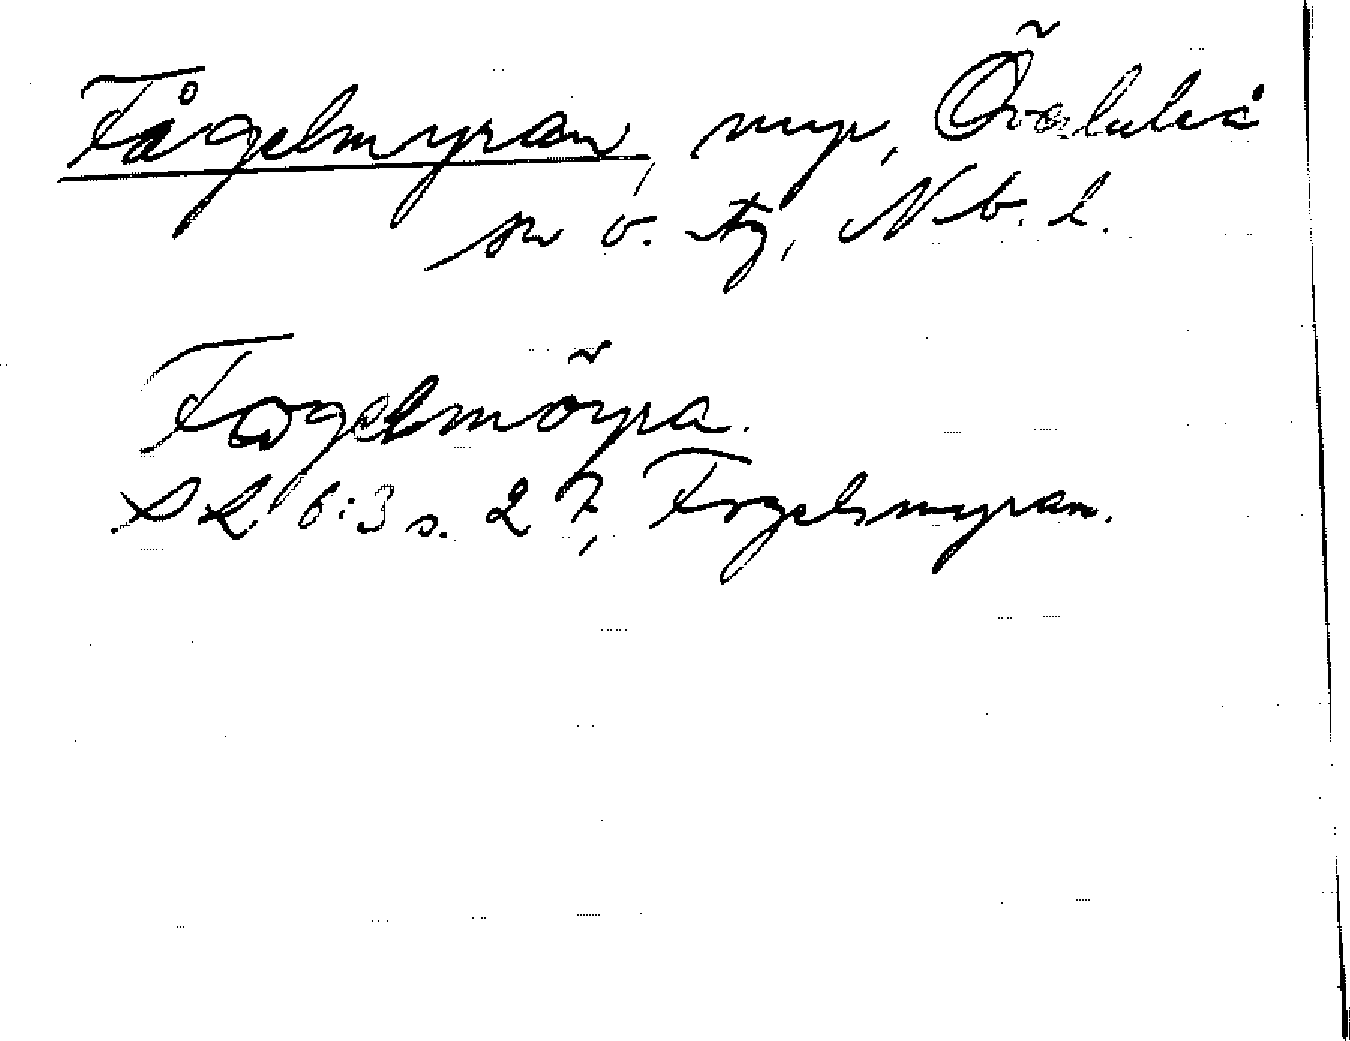 Fågelmyran, myr, Överluleå
sn o. tg, Nb. l.
Fogelmöyra.
SL 6:3 s. 27, Fogelsmyran.